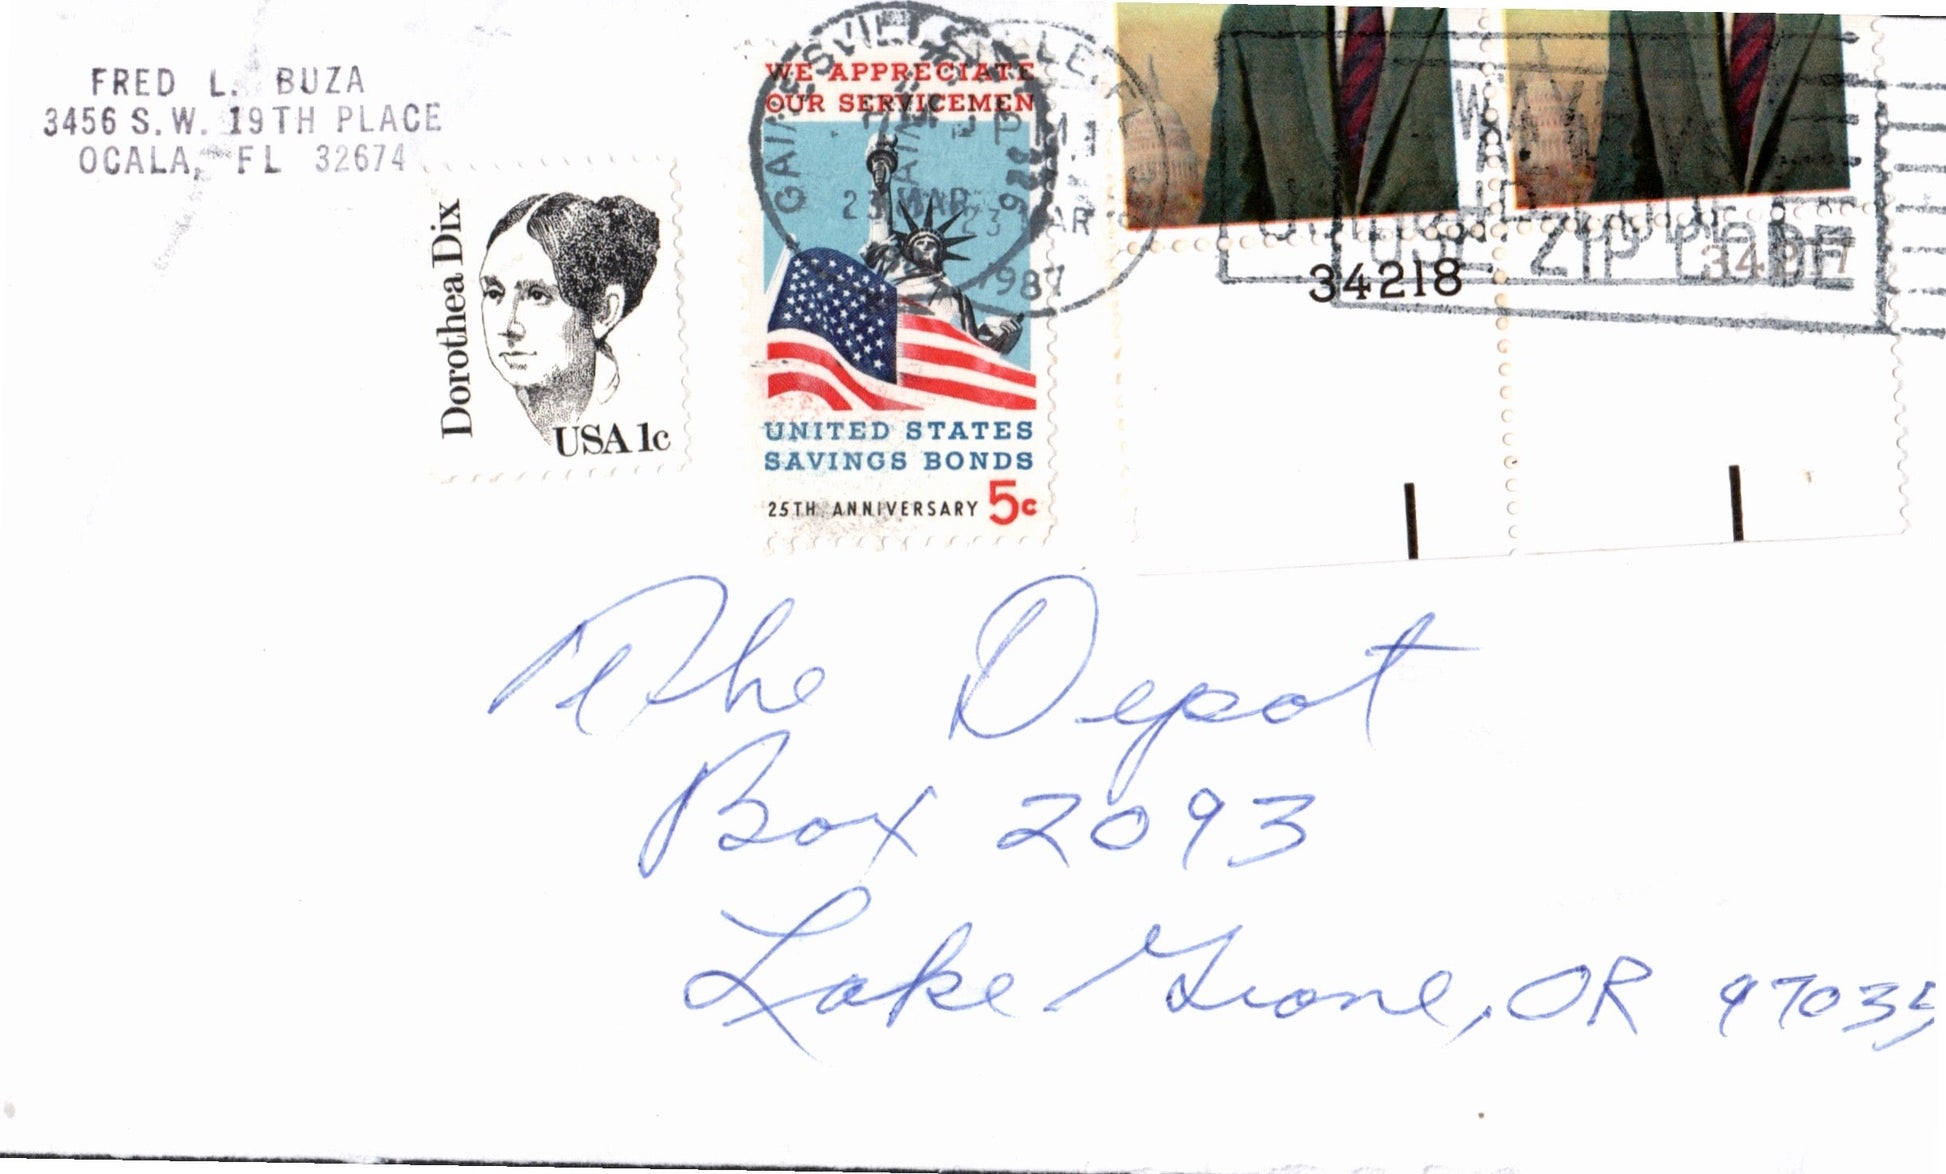 FRED L. BUZA
3456 S.W. 19TH PLACE
OCALA, FL 32674
Dorothea Dix
USA 1c
WE APPRECIATE
OUR SERVICEMEN
UNITED STATES
SAVINGS BONDS
25TH ANNIVERSARY 5c
GAINESVILLE, FL
23 MAR
1987
USE ZIP CODE
34218
34217
The Depot
Box 2093
Lake Grove, OR 97035